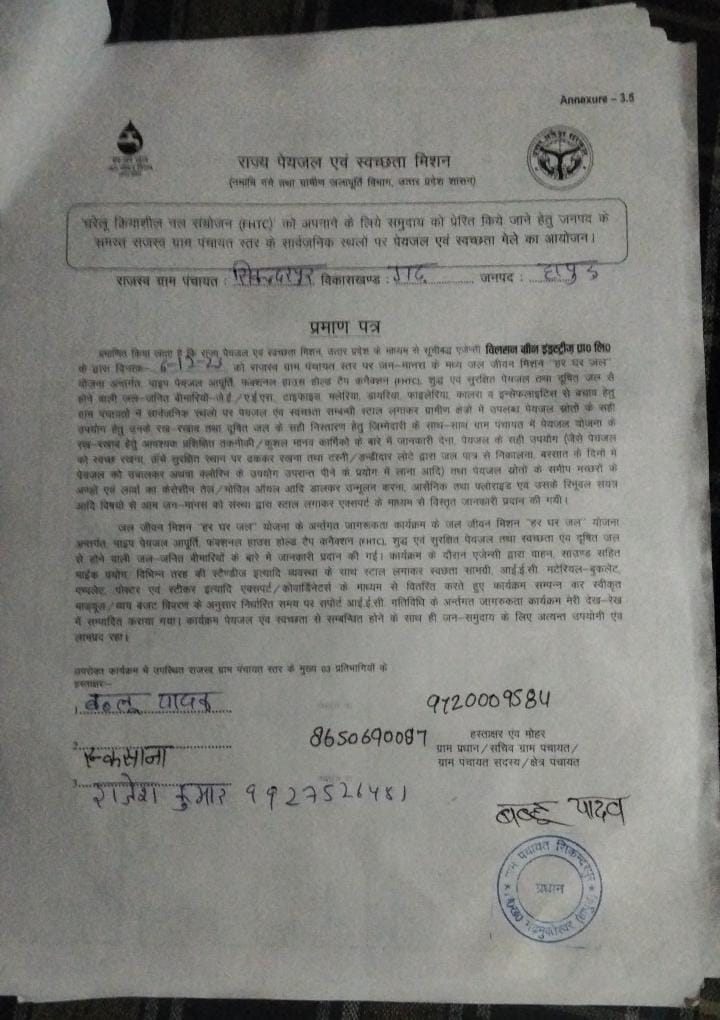 Annexure – 3.5
राज्य पेयजल एवं स्वच्छता मिशन
(नमामि गंगे तथा ग्रामीण जलापूर्ति विभाग, उत्तर प्रदेश शासन)
'घरेलू क्रियाशील नल संयोजन (FHTC)' को अपनाने के लिये समुदाय को प्रेरित किये जाने हेतु जनपद के
समस्त राजस्व ग्राम पंचायत स्तर के सार्वजनिक स्थलों पर पेयजल एवं स्वच्छता मेले का आयोजन।
राजस्व ग्राम पंचायत : सिकन्दरपुर विकासखण्ड : गढ़ जनपद : हापुड़
प्रमाण पत्र
प्रमाणित किया जाता है कि राज्य पेयजल एवं स्वच्छता मिशन, उत्तर प्रदेश के माध्यम से सूचीबद्ध एजेन्सी विलसन ग्रीन इंडस्ट्रीज प्रा० लि०
के द्वारा दिनांक- 6-12-23 को राजस्व ग्राम पंचायत स्तर पर जन-मानस के मध्य जल जीवन मिशन "हर घर जल"
योजना अन्तर्गत, पाइप पेयजल आपूर्ति, फंक्शनल हाउस होल्ड टैप कनैक्शन (FHTC), शुद्ध एवं सुरक्षित पेयजल तथा दूषित जल से
होने वाली जल-जनित बीमारियों-जे.ई./ए.ई.एस. टाइफाइड, मलेरिया, डायरिया, फाइलेरिया, कालरा व इन्सेफलाइटिस से बचाव हेतु
ग्राम पंचायतों में सार्वजनिक स्थलों पर पेयजल एवं स्वच्छता सम्बन्धी स्टाल लगाकर ग्रामीण क्षेत्रों में उपलब्ध पेयजल स्रोतों के सही
उपयोग हेतु उनके रख-रखाव तथा दूषित जल के सही निस्तारण हेतु जिम्मेदारी के साथ-साथ ग्राम पंचायत में पेयजल योजना के
रख-रखाव हेतु आवश्यक प्रशिक्षित तकनीकी/कुशल मानव कार्मिकों के बारे में जानकारी देना, पेयजल के सही उपयोग (जैसे पेयजल
को स्वच्छ रखना, ऊँचे सुरक्षित स्थान पर ढककर रखना तथा टरनी/डन्डीदार लोटे द्वारा जल पात्र से निकालना, बरसात के दिनों में
पेयजल को उबालकर अथवा क्लोरिन के उपयोग उपरान्त पीने के प्रयोग में लाना आदि) तथा पेयजल स्रोतों के समीप मच्छरों के
अण्डों एवं लार्वा का केरोसीन तेल/मोबिल ऑयल आदि डालकर उन्मूलन करना, आर्सेनिक तथा फ्लोराइड एवं उसके रिमूवल संयत्र
आदि विषयों से आम जन-मानस को संस्था द्वारा स्टाल लगाकर एक्सपर्ट के माध्यम से विस्तृत जानकारी प्रदान की गयी।
जल जीवन मिशन "हर घर जल" योजना के अर्न्तगत जागरूकता कार्यक्रम के जल जीवन मिशन "हर घर जल" योजना
अन्तर्गत, पाइप पेयजल आपूर्ति, फंक्शनल हाउस होल्ड टैप कनैक्शन (FHTC), शुद्ध एवं सुरक्षित पेयजल तथा स्वच्छता एंव दूषित जल
से होने वाली जल-जनित बीमारियों के बारे में जानकारी प्रदान की गई। कार्यक्रम के दौरान एजेन्सी द्वारा वाहन, साउण्ड सहित
माईक प्रयोग, विभिन्न तरह की स्टैण्डीज इत्यादि व्यवस्था के साथ स्टाल लगाकर स्वच्छता सामग्री, आई.ई.सी. मटेरियल-बुकलेट,
पम्पलेट, पोस्टर एवं स्टीकर इत्यादि एक्सपर्ट/कोवार्डिनेटर्स के माध्यम से वितरित करते हुए कार्यक्रम सम्पन्न कर स्वीकृत
माड्यूल/व्यय बजट विवरण के अनुसार निर्धारित समय पर सपोर्ट आई.ई.सी. गतिविधि के अर्न्तगत जागरूकता कार्यक्रम मेरी देख-रेख
में सम्पादित कराया गया। कार्यक्रम पेयजल एवं स्वच्छता से सम्बन्धित होने के साथ ही जन-समुदाय के लिए अत्यन्त उपयोगी एंव
लाभप्रद रहा।
उपरोक्त कार्यक्रम में उपस्थित राजस्व ग्राम पंचायत स्तर के मुख्य 03 प्रतिभागियों के
हस्ताक्षर:-
1. बबलू यादव 9720009584
2. रूकसाना 8650690087
हस्ताक्षर एंव मोहर
ग्राम प्रधान/सचिव ग्राम पंचायत/
ग्राम पंचायत सदस्य/क्षेत्र पंचायत
3. राजेश कुमार 9927526481
बबलू यादव
ग्राम पंचायत सिकन्दरपुर
प्रधान
गढ़मुक्तेश्वर (हापुड़)